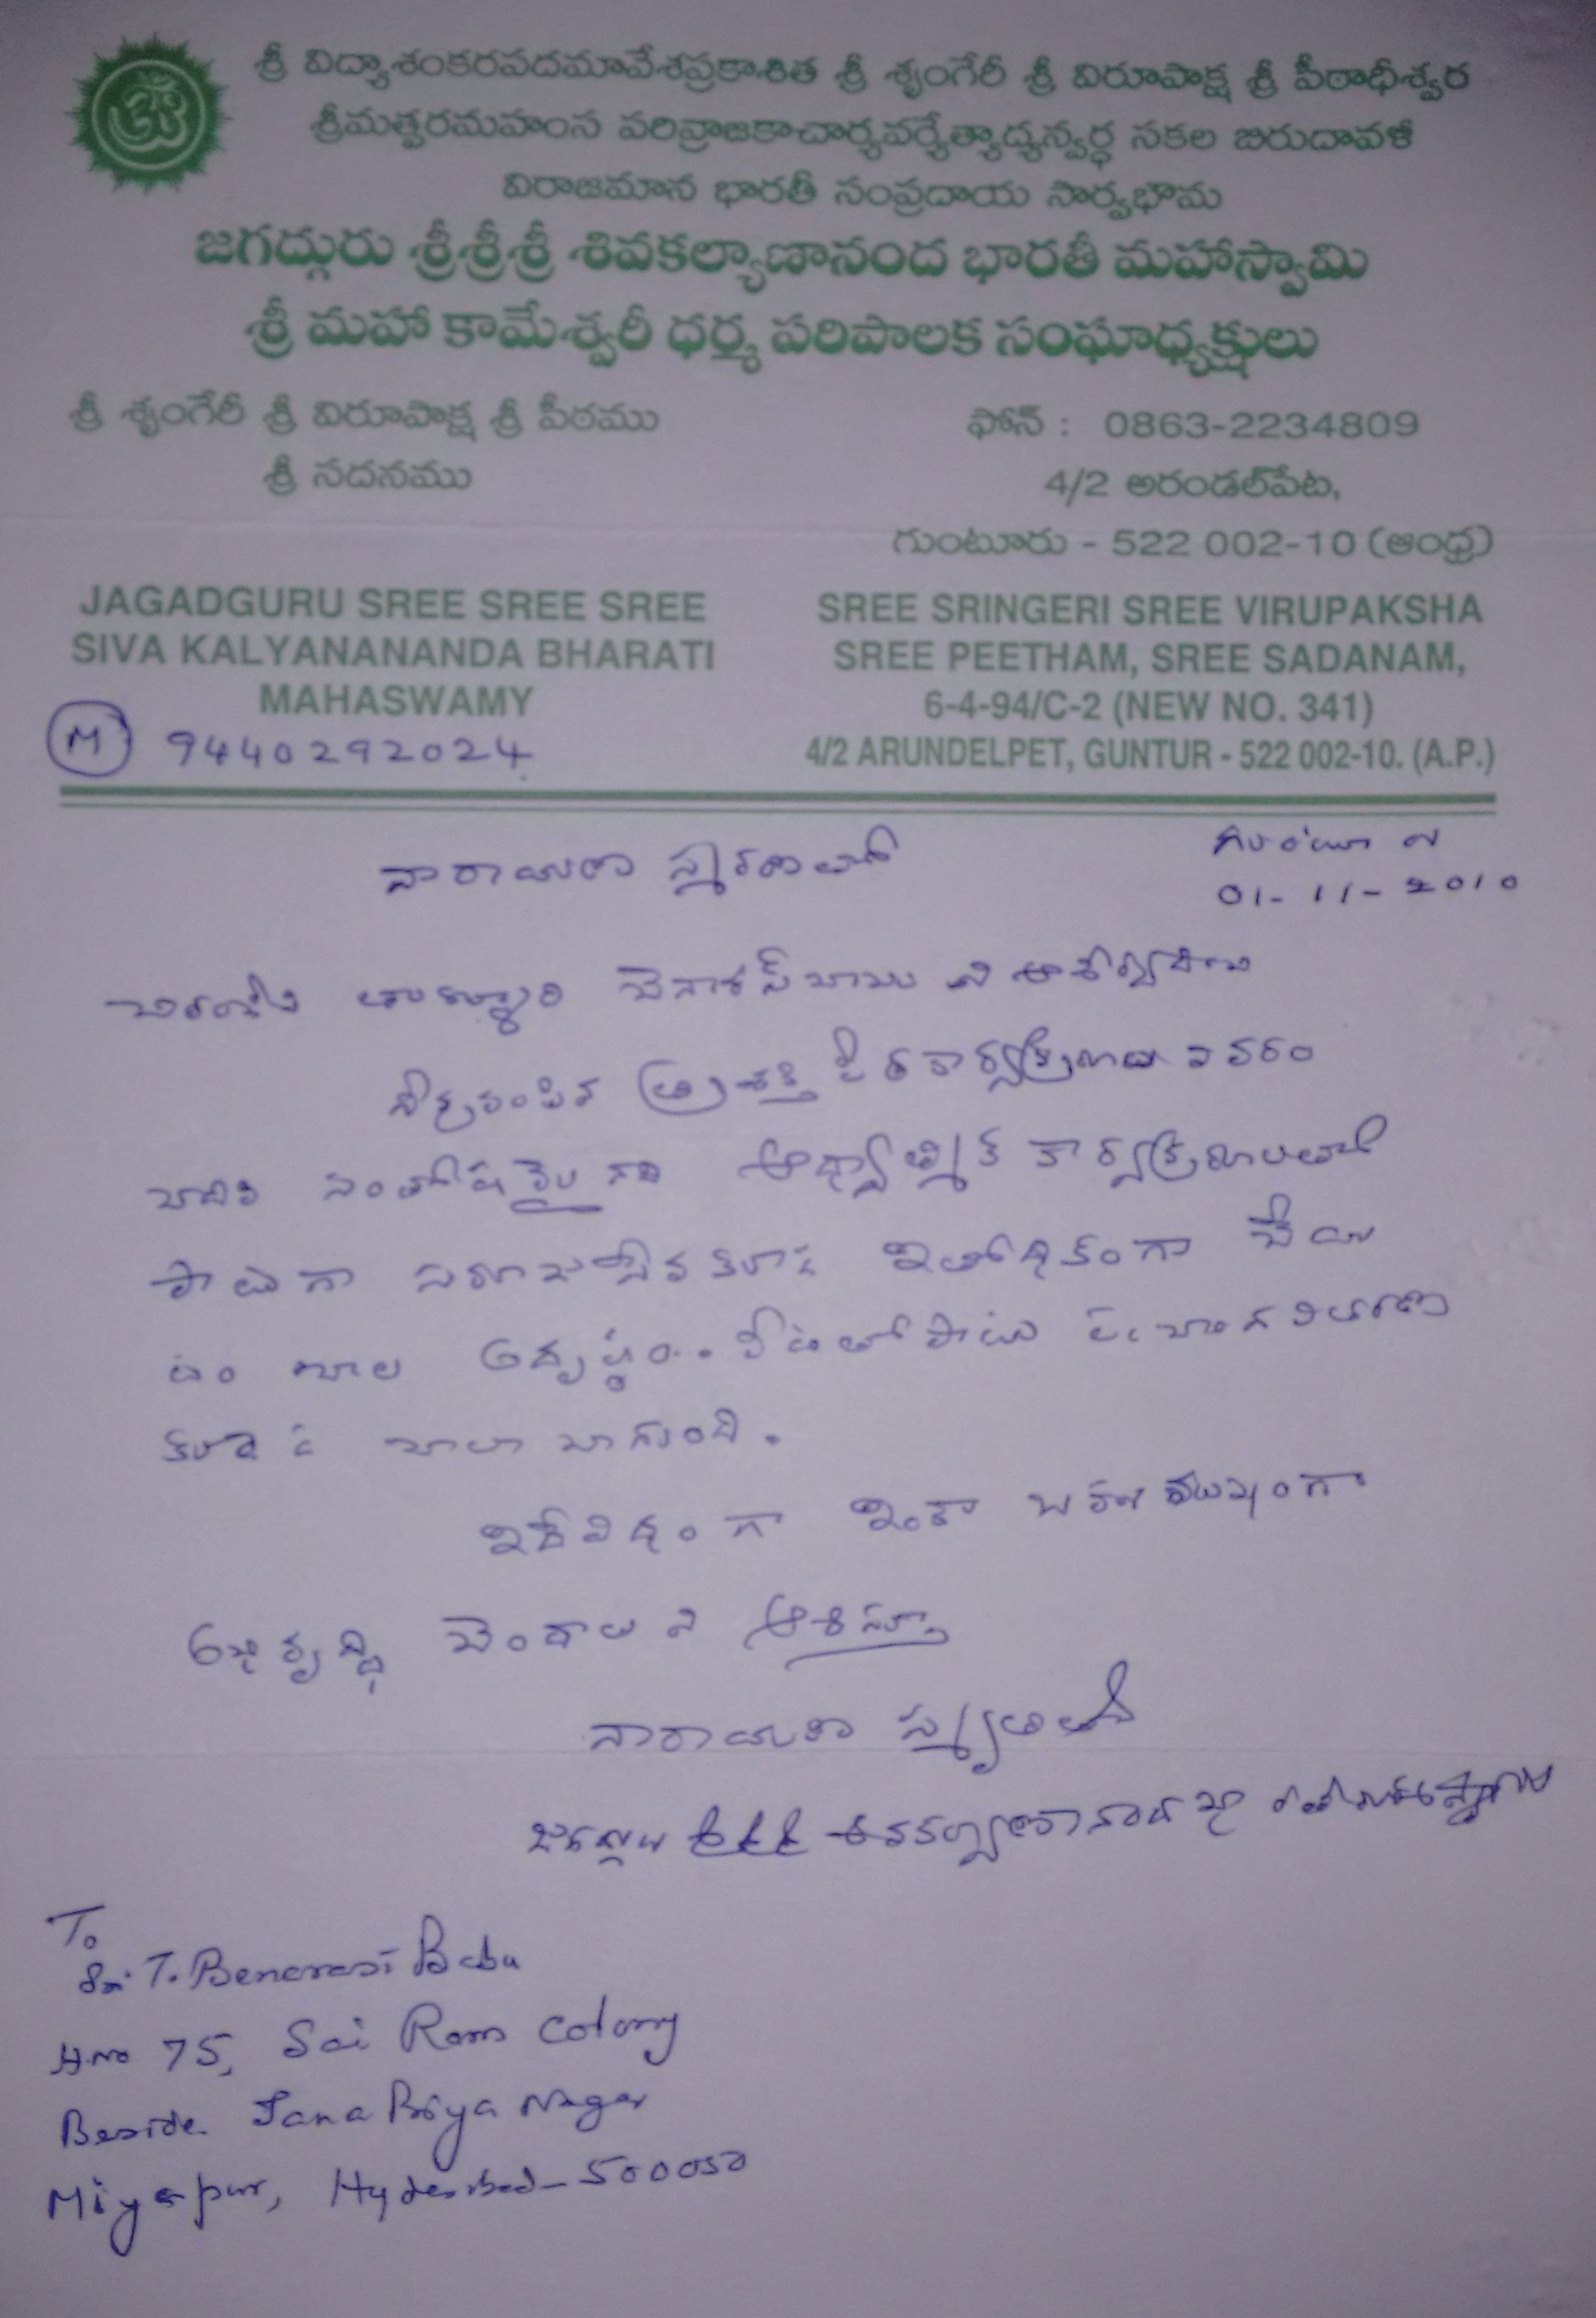 శ్రీ విద్యాశంకరపదమావేశప్రకాశిత శ్రీ శృంగేరీ శ్రీ విరూపాక్ష శ్రీ పీఠాధీశ్వర
శ్రీమత్పరమహంస పరివ్రాజకాచార్యవర్యేత్యాద్యన్వర్థ సకల బిరుదావళీ
విరాజమాన భారతీ సంప్రదాయ సార్వభౌమ
జగద్గురు శ్రీశ్రీశ్రీ శివకల్యాణానంద భారతీ మహాస్వామి
శ్రీ మహా కామేశ్వరీ ధర్మ పరిపాలక సంఘాధ్యక్షులు
శ్రీ శృంగేరీ శ్రీ విరూపాక్ష శ్రీ పీఠము
శ్రీ సదనము
ఫోన్ : 0863-2234809
4/2 అరండల్‌పేట,
గుంటూరు - 522 002-10 (ఆంధ్ర)
JAGADGURU SREE SREE SREE
SIVA KALYANANANDA BHARATI
MAHASWAMY
M 9440292024
SREE SRINGERI SREE VIRUPAKSHA
SREE PEETHAM, SREE SADANAM,
6-4-94/C-2 (NEW NO. 341)
4/2 ARUNDELPET, GUNTUR - 522 002-10. (A.P.)
నారాయణ స్మరణలతో
01-11-2010
చిరంజీవి తాళ్ళూరి బెనారస్ బాబు ని ఆశీర్వదించి
మీరు పంపిన ప్రశస్తి పత్ర కార్యక్రమాల వివరం
చాలా సంతోషమైనది ఆధ్యాత్మిక కార్యక్రమాలతో
పాటుగా సమాజసేవ కూడ ఇతోధికంగా చేయు
టం చాల అదృష్టం. వీటితో పాటు పంచాంగ వితరణ
కూడ చాలా బాగుంది.
ఇదేవిధంగా ఇంకా బహుముఖంగా
అభివృద్ధి చెందాలని ఆశిస్తూ
నారాయణ స్మృతులతో
జగద్గురు శ్రీశ్రీశ్రీ శివకల్యాణానంద భారతీ మహాస్వామి
To
Sri T. Benerasi Babu
H.no 75, Sai Ram colony
Beside Jana Priya Nagar
Miyapur, Hyderabad-500050